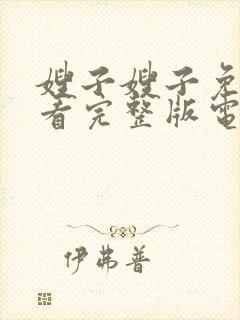 嫂子嫂子免
看完整版電
伊弗普